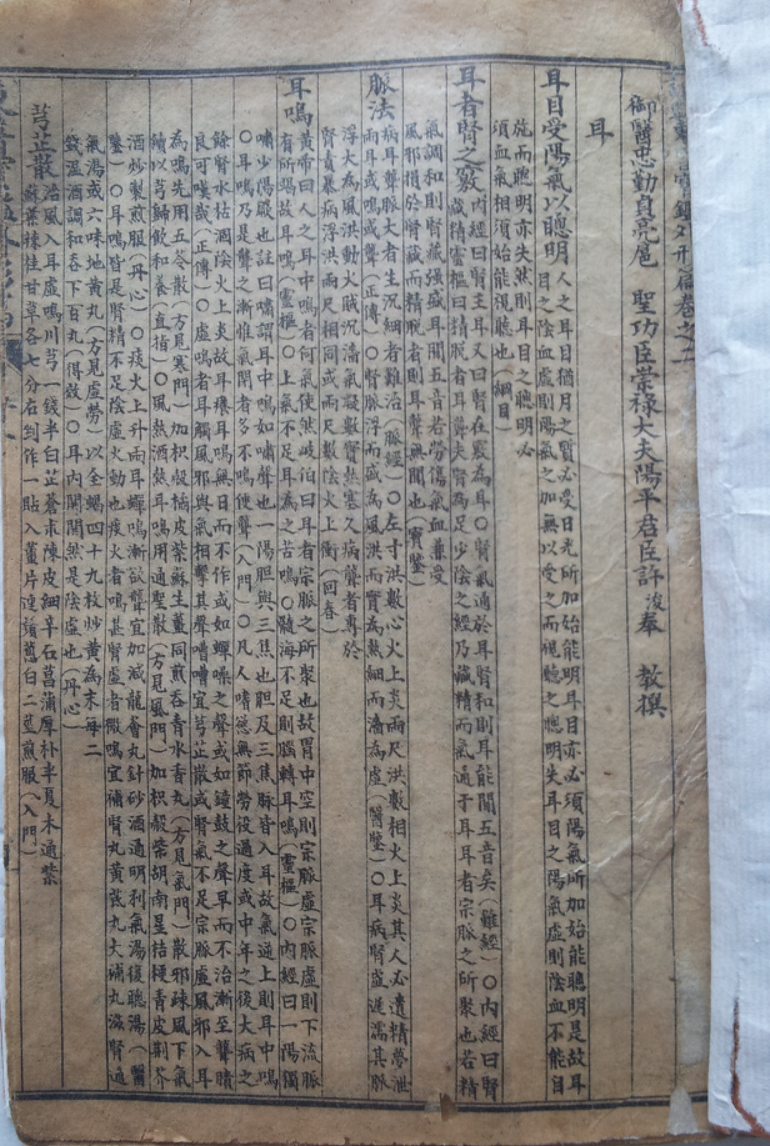 東醫寶鑑外形篇卷之二
御醫忠勤貞亮扈聖功臣崇祿大夫陽平君臣許浚奉教撰
耳
耳目受陽氣以聰明人之耳目猶月之質必受日光所加始能明耳目亦必須陽氣所加始能聰明是故耳
目之陰血虛則陽氣之加無以受之而視聽之聰明失耳目之陽氣虛則陰血不能自
施而聰明亦失然則耳目之聰明必
須血氣相須始能視聽也(綱目)
耳者腎之竅內經曰腎主耳又曰腎在竅為耳○腎氣通於耳腎和則耳能聞五音矣(難經)○內經曰腎
藏精靈樞曰精脫者耳聾夫腎為足少陰之經乃藏精而氣通于耳耳者宗脈之所聚也若精
氣調和則腎藏强盛耳聞五音若勞傷氣血兼受
風邪損於腎藏而精脫者則耳聾無聞也(寶鑒)
脈法病耳聾脈大者生沉細者難治(脈經)○左寸洪數心火上炎兩尺洪數相火上炎其人必遺精夢泄
兩耳或鳴或聾(正傳)○腎脈浮而盛為風洪而實為熱細而濇為虛(醫鑒)○耳病腎虛遲濡其脈
浮大為風洪動火賊沉濇氣凝數實熱塞久病聾者專於
腎責暴病浮洪兩尺相同或兩尺數陰火上衝(回春)
耳鳴黃帝曰人之耳中鳴者何氣使然岐伯曰耳者宗脈之所聚也故胃中空則宗脈虛宗脈虛則下流脈
有所竭故耳鳴(靈樞)○上氣不足耳為之苦鳴○髓海不足則腦轉耳鳴(靈樞)○內經曰一陽獨
嘯少陽厥也註曰嘯謂耳中鳴如嘯聲也一陽胆與三焦也胆及三焦脈皆入耳故氣逆上則耳中鳴
○耳鳴乃是聾之漸惟氣閉者多不鳴便聾(入門)○凡人嗜慾無節勞役過度或中年之後大病之
餘腎水枯涸陰火上炎故耳痒耳鳴無日而不作或如蟬噪之聲或如鐘鼓之聲早而不治漸至聾聵
良可嘆哉(正傳)○虛鳴者耳觸風邪與氣相擊其聲嘈嘈宜芎芷散或腎氣不足宗脈虛風邪入耳
為鳴先用五苓散(方見寒門)加枳殼橘皮紫蘇生薑同煎吞青木香丸(方見氣門)散邪疎風下氣
續以芎歸飲和養(直指)○風熱酒熱耳鳴用通聖散(方見風門)加枳殼柴胡南星桔梗青皮荊芥
酒炒製煎服(丹心)○痰火上升兩耳蟬鳴漸欲聾宜加減龍薈丸針砂酒通明利氣湯復聰湯(醫
鑒)○耳鳴皆是腎精不足陰虛火動也痰火者鳴甚腎虛者微鳴宜補腎丸黃芪丸大補丸滋腎通
氣湯或六味地黃丸(方見虛勞)以全蝎四十九枚炒黃為末每二
錢溫酒調和吞下百丸(得效)○耳內閧閧然是陰虛也(丹心)
芎芷散治風入耳虛鳴川芎一錢半白芷蒼朮陳皮細辛石菖蒲厚朴半夏木通紫
蘇葉辣桂甘草各七分右剉作一貼入薑片連鬚葱白二莖煎服(入門)